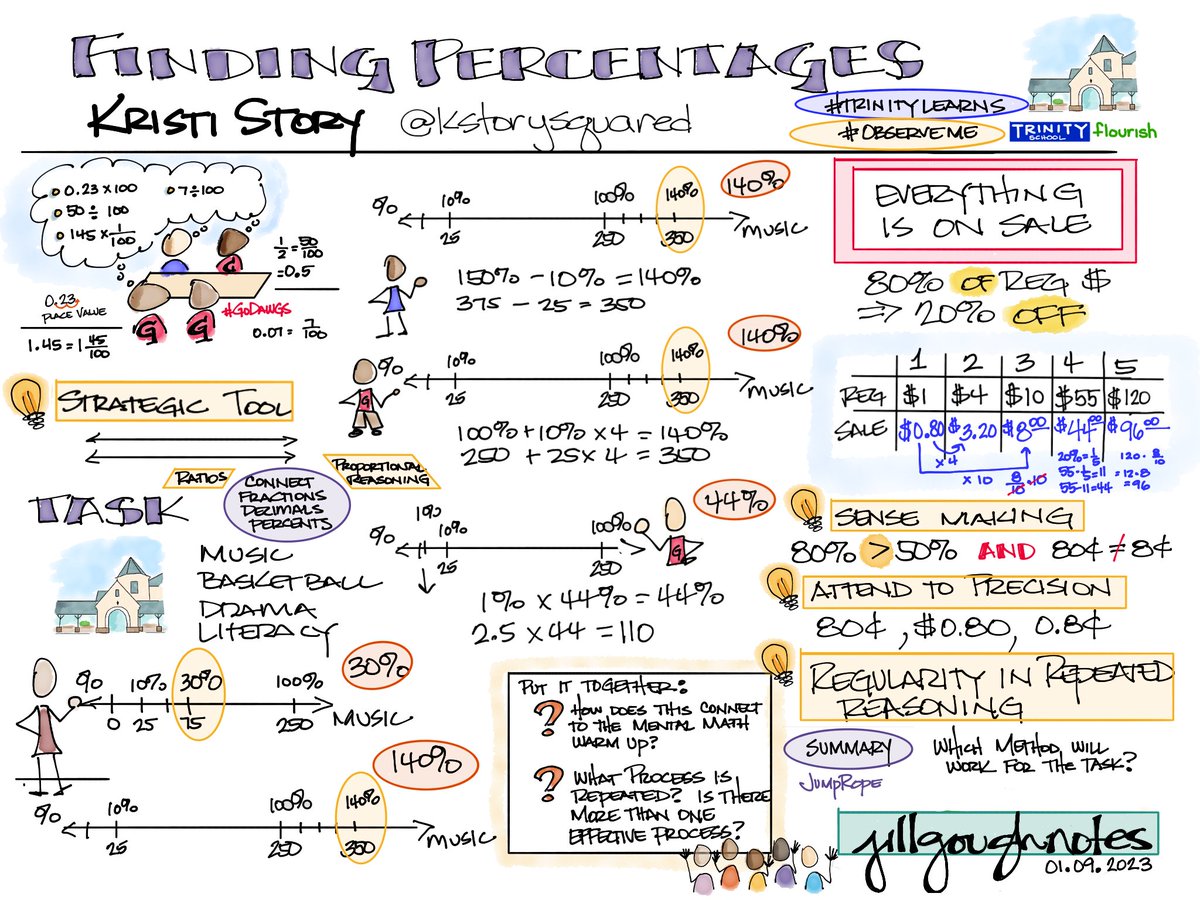 FINDING PERCENTAGES
KRISTI STORY @kstorysquared
#TRINITYLEARNS
#OBSERVEME
TRINITY SCHOOL flourish
0.23 x 100
7 ÷ 100
50 ÷ 100
145 x 1/100
1/2 = 50/100
= 0.5
0.23
PLACE VALUE
#GODAWGS
G
G
G
1.45 = 1 45/100
0.07 = 7/100
STRATEGIC TOOL
RATIOS
PROPORTIONAL REASONING
CONNECT
FRACTIONS
DECIMALS
PERCENTS
TASK
MUSIC
BASKETBALL
DRAMA
LITERACY
% 10% 30% 100%
30%
0 25 75 250
MUSIC
140%
% 10% 100% 140%
25 250 350
MUSIC
% 10% 100% 140%
140%
25 250 350
MUSIC
150% - 10% = 140%
375 - 25 = 350
% 10% 100% 140%
140%
25 250 350
MUSIC
G
100% + 10% x 4 = 140%
250 + 25 x 4 = 350
44%
1%
% 10% 100%
25 250
G
1% x 44% = 44%
2.5 x 44 = 110
PUT IT TOGETHER:
? HOW DOES THIS CONNECT
TO THE MENTAL MATH
WARM UP?
? WHAT PROCESS IS
REPEATED? IS THERE
MORE THAN ONE
EFFECTIVE PROCESS?
EVERYTHING
IS ON SALE
80% OF REG $
=> 20% OFF
1 2 3 4 5
REG $1 $4 $10 $55 $120
SALE $0.80 $3.20 $8.00 $44.00 $96.00
x 4
x 10
8/10 · 10
20% = 1/5
55 · 1/5 = 11
55 - 11 = 44
120 · 8/10
= 12 · 8
= 96
SENSE MAKING
80% > 50% AND 80¢ ≠ 8¢
ATTEND TO PRECISION
80¢, $0.80, 0.8¢
REGULARITY IN REPEATED
REASONING
SUMMARY
JUMPROPE
WHICH METHOD WILL
WORK FOR THE TASK?
jillgoughnotes
01.09.2023